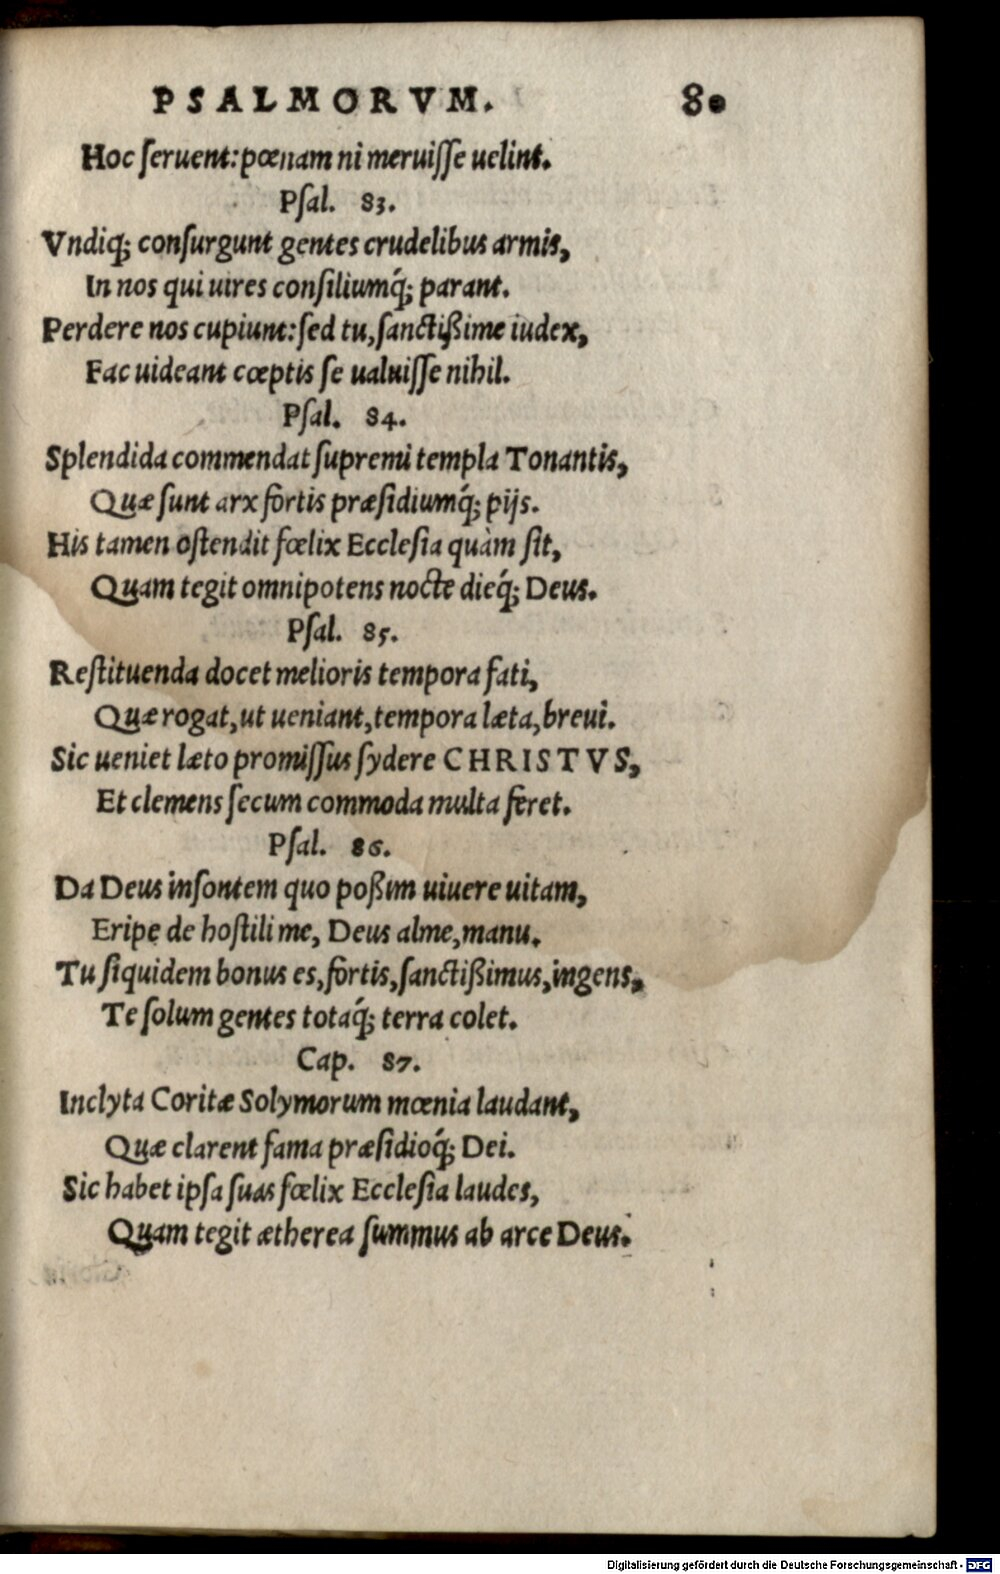 PSALMORVM. 80
Hoc ſeruent: pœnam ni meruiſſe uelint.
Pſal. 83.
Vndiq; conſurgunt gentes crudelibus armis,
In nos qui uires conſiliumq́; parant.
Perdere nos cupiunt: ſed tu, ſanctißime iudex,
Fac uideant cœptis ſe ualuiſſe nihil.
Pſal. 84.
Splendida commendat ſupremi templa Tonantis,
Quæ ſunt arx fortis præſidiumq́; pijs.
His tamen oſtendit fœlix Eccleſia quàm ſit,
Quam tegit omnipotens nocte dieq́; Deus.
Pſal. 85.
Reſtituenda docet melioris tempora fati,
Quæ rogat, ut ueniant, tempora læta, breui.
Sic ueniet læto promiſſus ſydere CHRISTVS,
Et clemens ſecum commoda multa feret.
Pſal. 86.
Da Deus inſontem quo poßim uiuere uitam,
Eripe de hoſtili me, Deus alme, manu.
Tu ſiquidem bonus es, fortis, ſanctißimus, ingens,
Te ſolum gentes totaq́; terra colet.
Cap. 87.
Inclyta Coritæ Solymorum mœnia laudant,
Quæ clarent fama præſidioq́; Dei.
Sic habet ipſa ſuas fœlix Eccleſia laudes,
Quam tegit ætherea ſummus ab arce Deus.
Digitalisierung gefördert durch die Deutsche Forschungsgemeinschaft - DFG